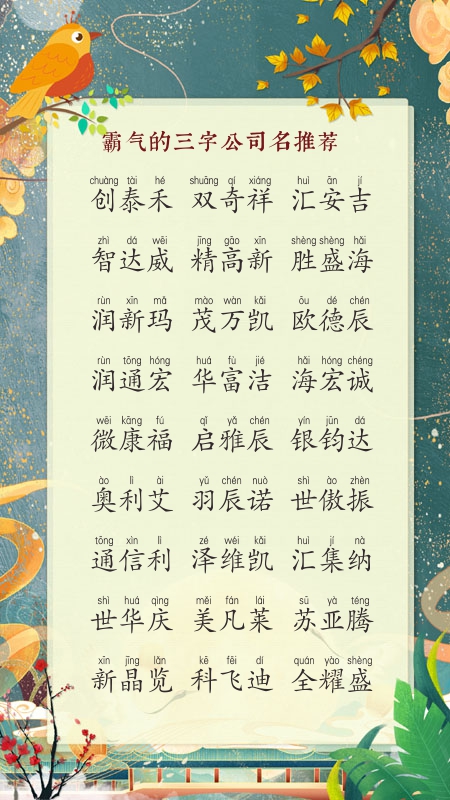 霸气的三字公司名推荐
chuàng tài hé shuāng qí xiáng huì ān jí
创泰禾 双奇祥 汇安吉
zhì dá wēi jīng gāo xīn shèng shèng hǎi
智达威 精高新 胜盛海
rùn xīn mǎ mào wàn kǎi ōu dé chén
润新玛 茂万凯 欧德辰
rùn tōng hóng huá fù jié hǎi hóng chéng
润通宏 华富洁 海宏诚
wēi kāng fú qǐ yǎ chén yín jūn dá
微康福 启雅辰 银钧达
ào lì ài yǔ chén nuò shì ào zhèn
奥利艾 羽辰诺 世傲振
tōng xìn lì zé wéi kǎi huì jí nà
通信利 泽维凯 汇集纳
shì huá qìng měi fán lái sū yà téng
世华庆 美凡莱 苏亚腾
xīn jīng lǎn kē fēi dí quán yào shèng
新晶览 科飞迪 全耀盛